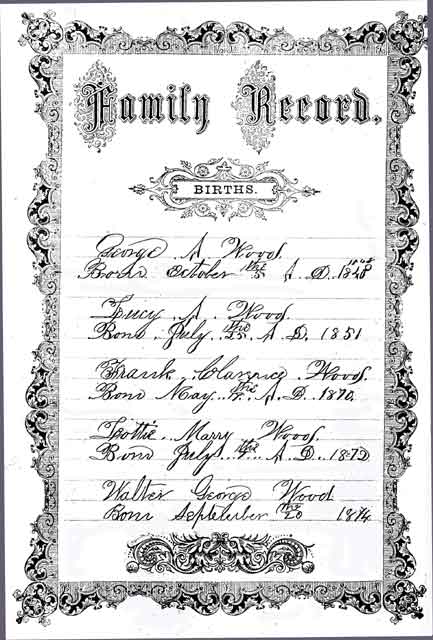 Family Record.
BIRTHS.
George A. Wood.
Born October the 5 A. D. 1848
Lucy A. Wood.
Born July the 25 A. D. 1851
Frank Clarence Wood.
Born May the A. D. 1870.
Lottie Marry Wood.
Born July the A. D. 1872
Walter George Wood
Born September the 20 1874